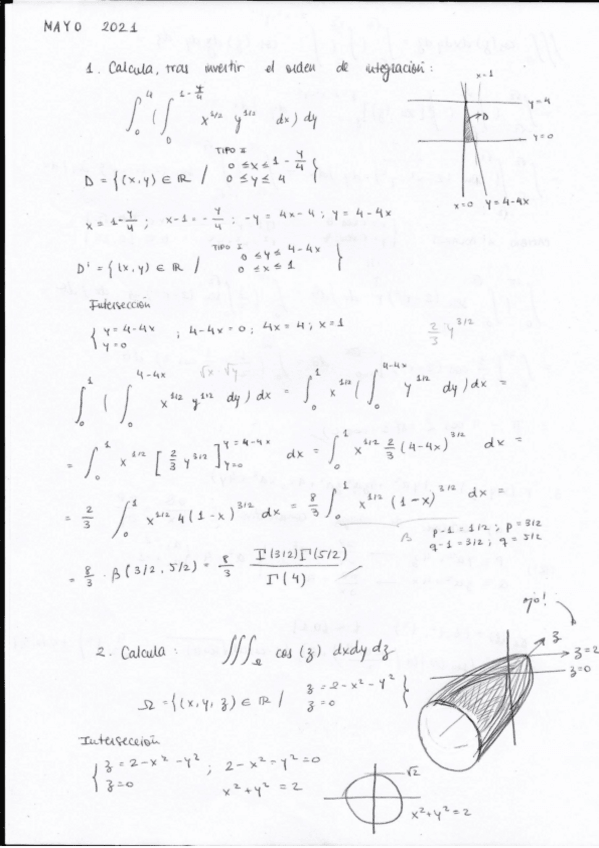 MAYO 2021
1. Calcula, tras invertir el orden de integración:
∫₀⁴ (∫₀^(1-y/4) x^(1/2) y^(1/2) dx) dy
x-1
y=4
D
y=0
x=0 y=4-4x
TIPO I
D = {(x,y) ∈ ℝ / 0 ≤ x ≤ 1 - y/4
0 ≤ y ≤ 4 }
x = 1 - y/4 ; x-1 = -y/4 ; -y = 4x-4 ; y = 4-4x
TIPO I
D' = {(x,y) ∈ ℝ / 0 ≤ y ≤ 4-4x
0 ≤ x ≤ 1 }
Intersección
{ y = 4-4x
y = 0 ; 4-4x = 0 ; 4x = 4 ; x = 1
2/3 y^(3/2)
√x √y
∫₀¹ ( ∫₀^(4-4x) x^(1/2) y^(1/2) dy) dx = ∫₀¹ x^(1/2) (∫₀^(4-4x) y^(1/2) dy) dx =
= ∫₀¹ x^(1/2) [2/3 y^(3/2)]_(y=0)^(y=4-4x) dx = ∫₀¹ x^(1/2) 2/3 (4-4x)^(3/2) dx =
= 2/3 ∫₀¹ x^(1/2) 4 (1-x)^(3/2) dx = 8/3 ∫₀¹ x^(1/2) (1-x)^(3/2) dx =
β p-1 = 1/2 ; p = 3/2
q-1 = 3/2 ; q = 5/2
= 8/3 · β (3/2, 5/2) = 8/3 Γ(3/2) Γ(5/2) / Γ(4)
ojo!
2. Calcula: ∭_Ω cos (z) dxdydz
z
z=2
z=0
Ω = {(x,y,z) ∈ ℝ / z = 2-x²-y²
z = 0 }
Intersección
{ z = 2-x²-y²
z = 0 ; 2-x²-y² = 0
x²+y² = 2
√2
x²+y²=2